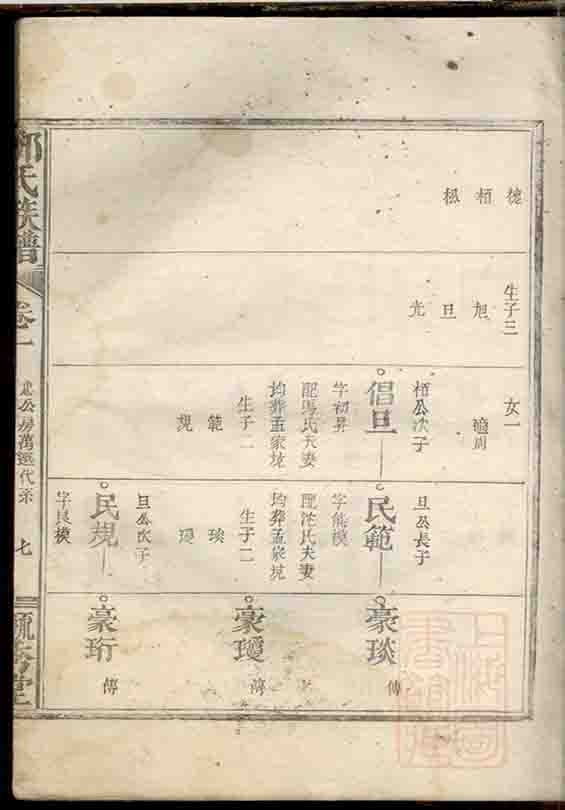 德
栢
松
生子三
旭
旦
尢
女一
適周
栢公次子
倡旦
字初昇
配馮氏夫妻
均葬孟家坑
生子二
範
規
旦公長子
民範
字能模
配沈氏夫妻
均葬孟家坑
生子二
琰
瑷
旦公次子
民規
字良模
豪琰
傳
豪瑷
傳
豪珩
傳
氏族譜
卷一
公房萬選代系
七
堂